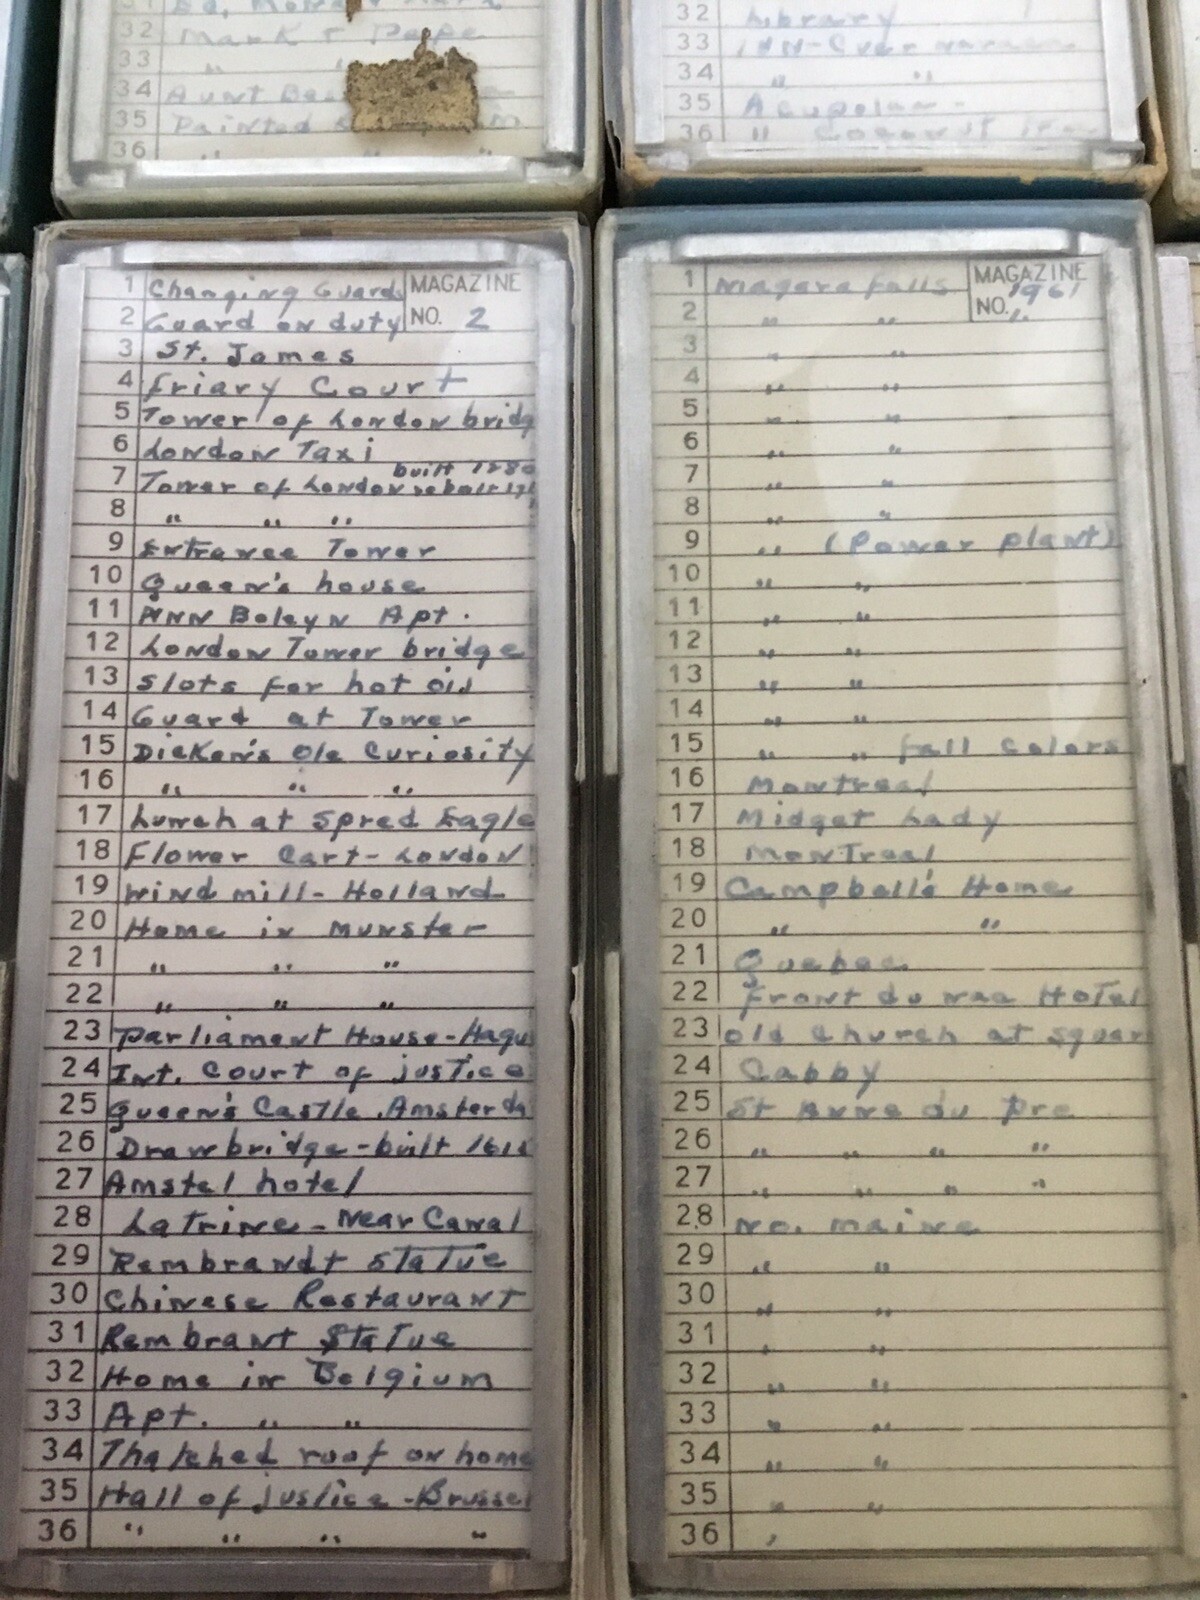 32 Mark & Pope
33 " "
34 Aunt
35 Painted
36 " " "
32 Library
33
34 " "
35 Acapulco -
36 "
1 Changing Guards MAGAZINE
2 Guard on duty NO. 2
3 St. James
4 Friary Court
5 Tower of London bridg
6 London Taxi
7 Tower of London built
8 " " "
9 Entrance Tower
10 Queen's house
11 Ann Boleyn Apt.
12 London Tower bridge
13 Slots for hot oil
14 Guard at Tower
15 Dicken's Ole Curiosity
16 " " "
17 Lunch at Spred Eagle
18 Flower Cart - London
19 Wind mill - Holland
20 Home in Munster
21 " " "
22 " " "
23 Parliament House - Hagu
24 Int. Court of justice
25 Queen's Castle, Amsterda
26 Drawbridge - built
27 Amstel hotel
28 Latrine - Near Canal
29 Rembrandt Statue
30 Chinese Restaurant
31 Rembrant Statue
32 Home in Belgium
33 Apt. " "
34 Thatched roof on home
35 Hall of justice - Brussel
36 " " " "
1 Niagara Falls MAGAZINE 1961
2 " " NO. 1.
3 " "
4 " "
5 " "
6 " "
7 " "
8 " "
9 " (Power plant)
10 " "
11 " "
12 " "
13 " "
14 " "
15 " " fall colors
16 Montreal
17 Midget Lady
18 Montreal
19 Campbell's Home
20 " "
21 Quebec
22 Front du nac Hotel
23 old Church at squar
24 Cabby
25 St Anne du Pre
26 " " " "
27 " " " "
28 No. Maine
29 " "
30 " "
31 " "
32 " "
33 " "
34 " "
35 " "
36 "